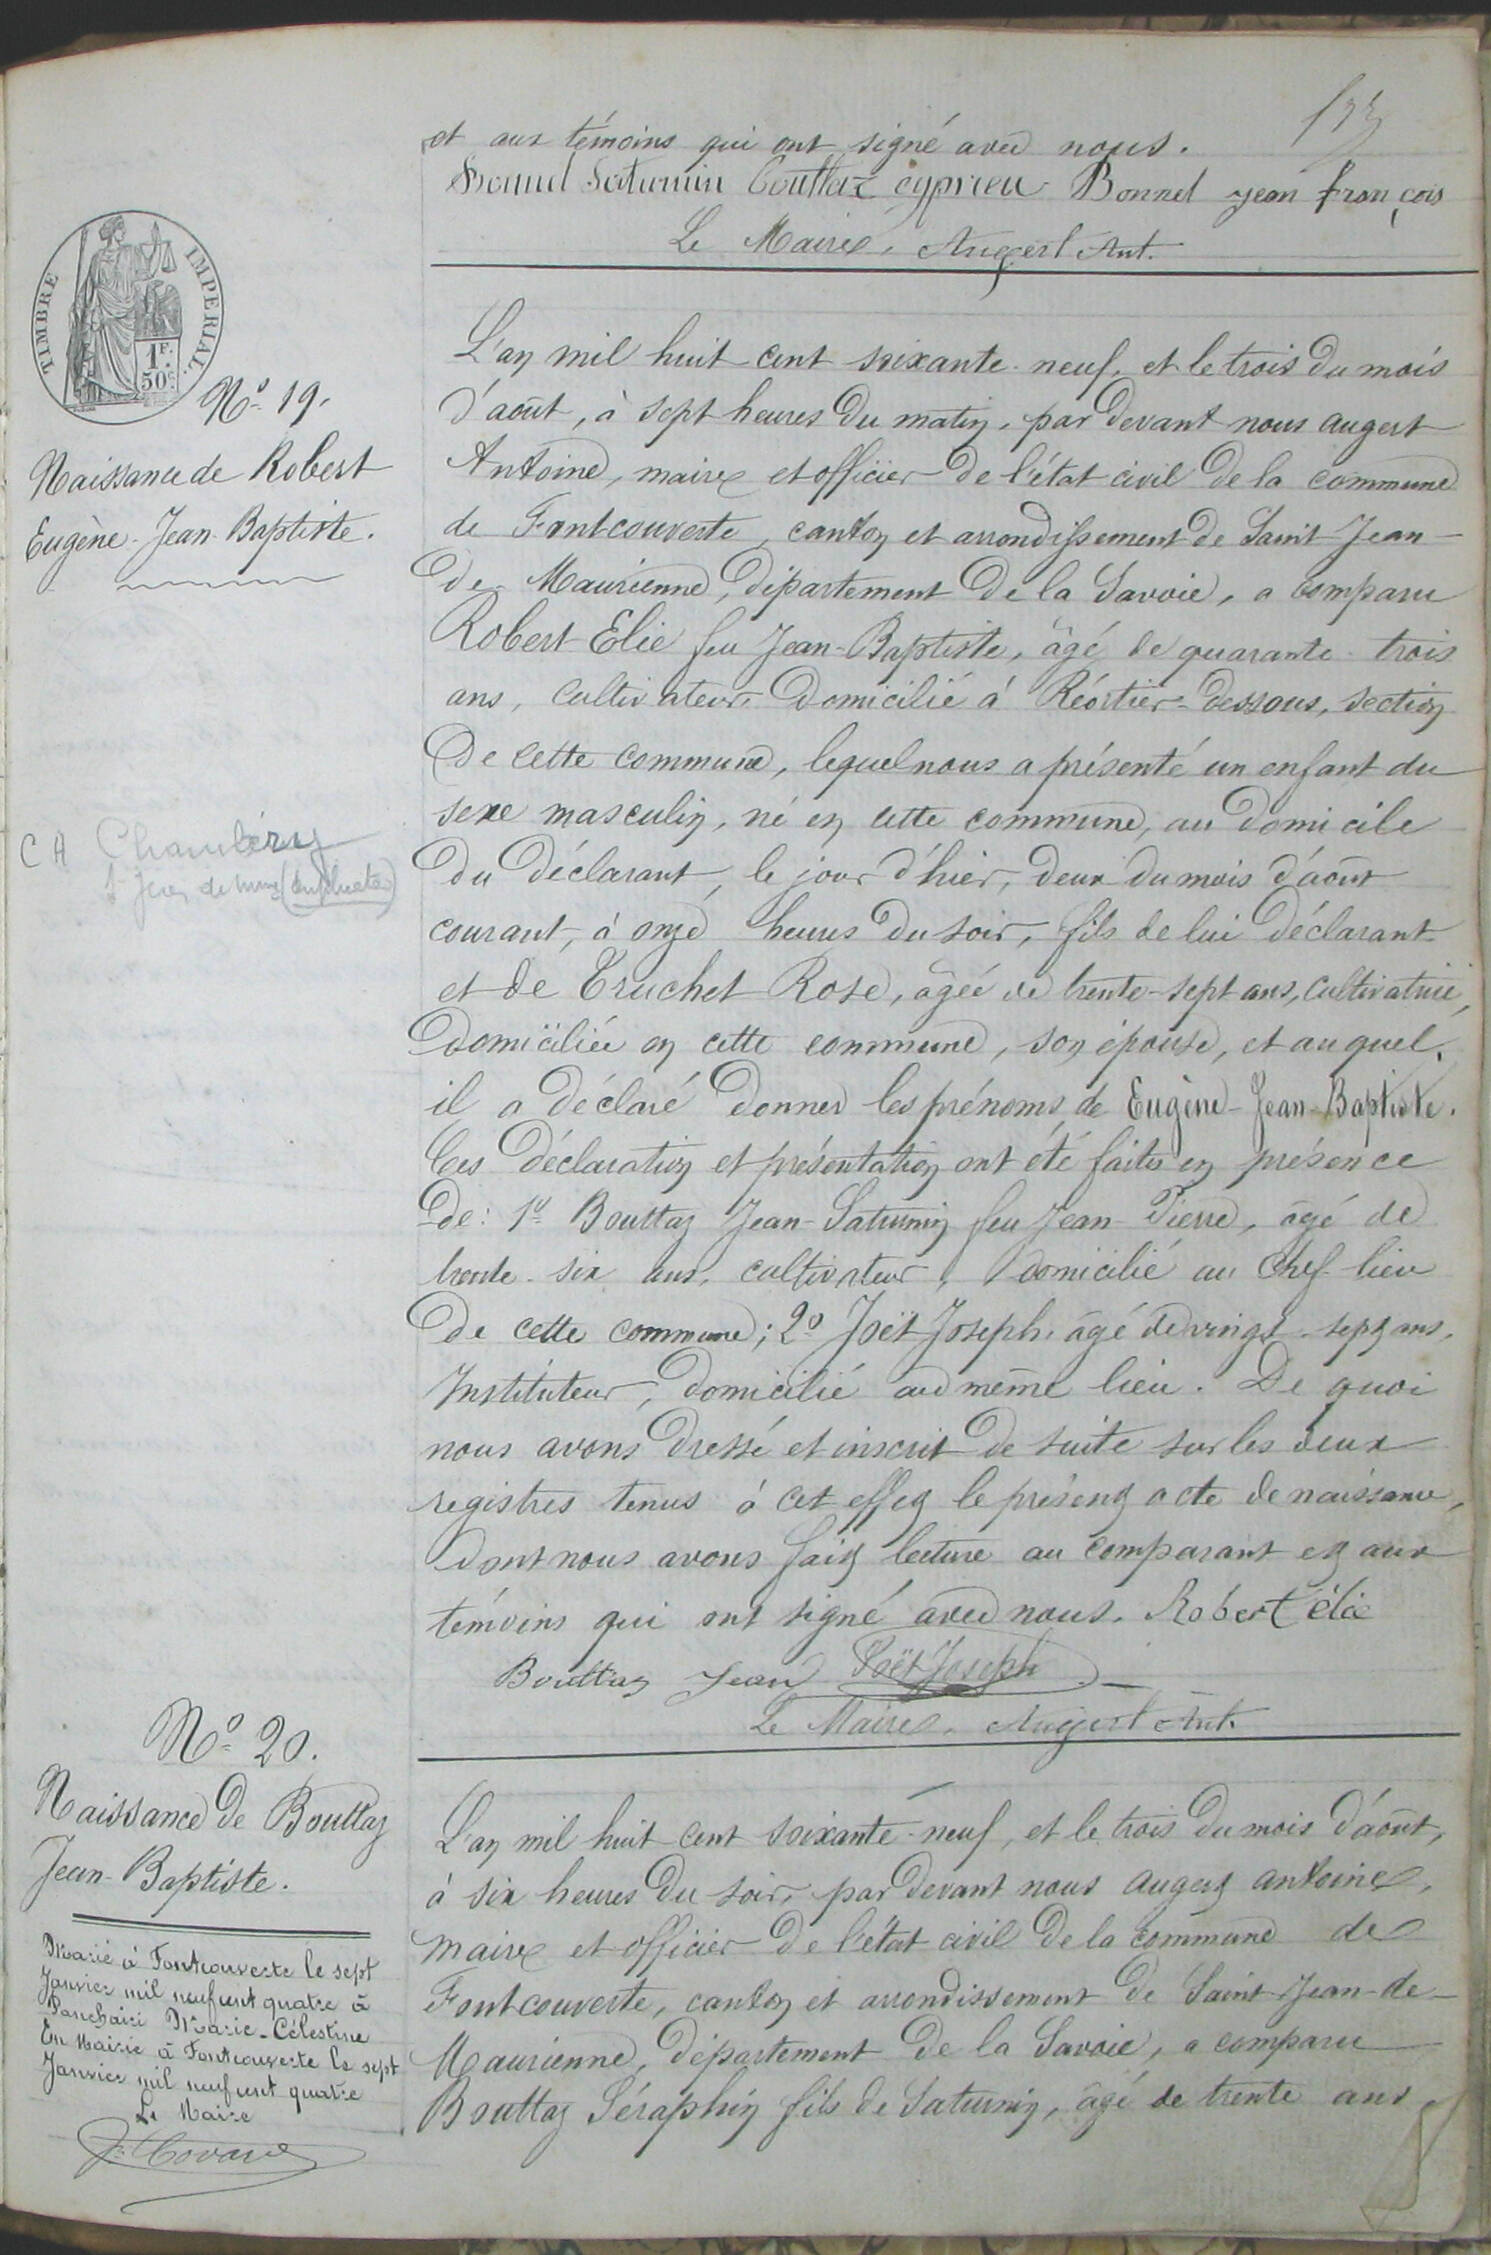 et aux témoins qui ont signé avec nous.
Saturnin Bouttaz cyprien Bonnel jean françois
Le Maire, Augert Ant.
TIMBRE IMPERIAL
1F. 50c.
No. 19.
Naissance de Robert
Eugène-Jean-Baptiste.
L'an mil huit cent soixante-neuf, et le trois du mois
d'août, à sept heures du matin, par devant nous augert
Antoine, maire et officier de l'état civil de la commune
de Fontcouverte, canton et arrondissement de Saint-Jean-
de-Maurienne, département de la Savoie, a comparu
Robert Elie feu Jean-Baptiste, âgé de quarante-trois
ans, cultivateur, domicilié à Réortier-dessous, section
de cette commune, lequel nous a présenté un enfant du
sexe masculin, né en cette commune, au domicile
du déclarant, le jour d'hier, deux du mois d'août
courant, à onze heures du soir, fils de lui déclarant
et de Truchet Rose, âgée de trente-sept ans, cultivatrice,
domiciliée en cette commune, son épouse, et auquel
il a déclaré donner les prénoms de Eugène-Jean-Baptiste.
Ces déclaration et présentation ont été faites en présence
de: 1o Bouttaz Jean-Saturnin feu Jean-Pierre, âgé de
trente-six ans, cultivateur, domicilié au Chef-lieu
de cette commune; 2o Joët Joseph, âgé de vingt-sept ans,
Instituteur, domicilié au même lieu. De quoi
nous avons dressé et inscrit de suite sur les deux
registres tenus à cet effet le présent acte de naissance,
dont nous avons fait lecture au comparant et aux
témoins qui ont signé avec nous. Robert élie
Bouttaz Jean Joët Joseph
Le Maire, Augert Ant.
CA Chambéry
St Jean de (duplicata)
No. 20.
Naissance de Bouttaz
Jean-Baptiste.
Marié à Fontcouverte le sept
Janvier mil neuf cent quatre à
Marie-Célestine
En Mairie à Fontcouverte le sept
Janvier mil neuf cent quatre
Le Maire
L'an mil huit cent soixante-neuf, et le trois du mois d'août,
à six heures du soir, par devant nous augert antoine,
maire et officier de l'état civil de la commune de
Fontcouverte, canton et arrondissement de Saint-Jean-de-
Maurienne, département de la Savoie, a comparu
Bouttaz Séraphin fils de Saturnin, âgé de trente ans